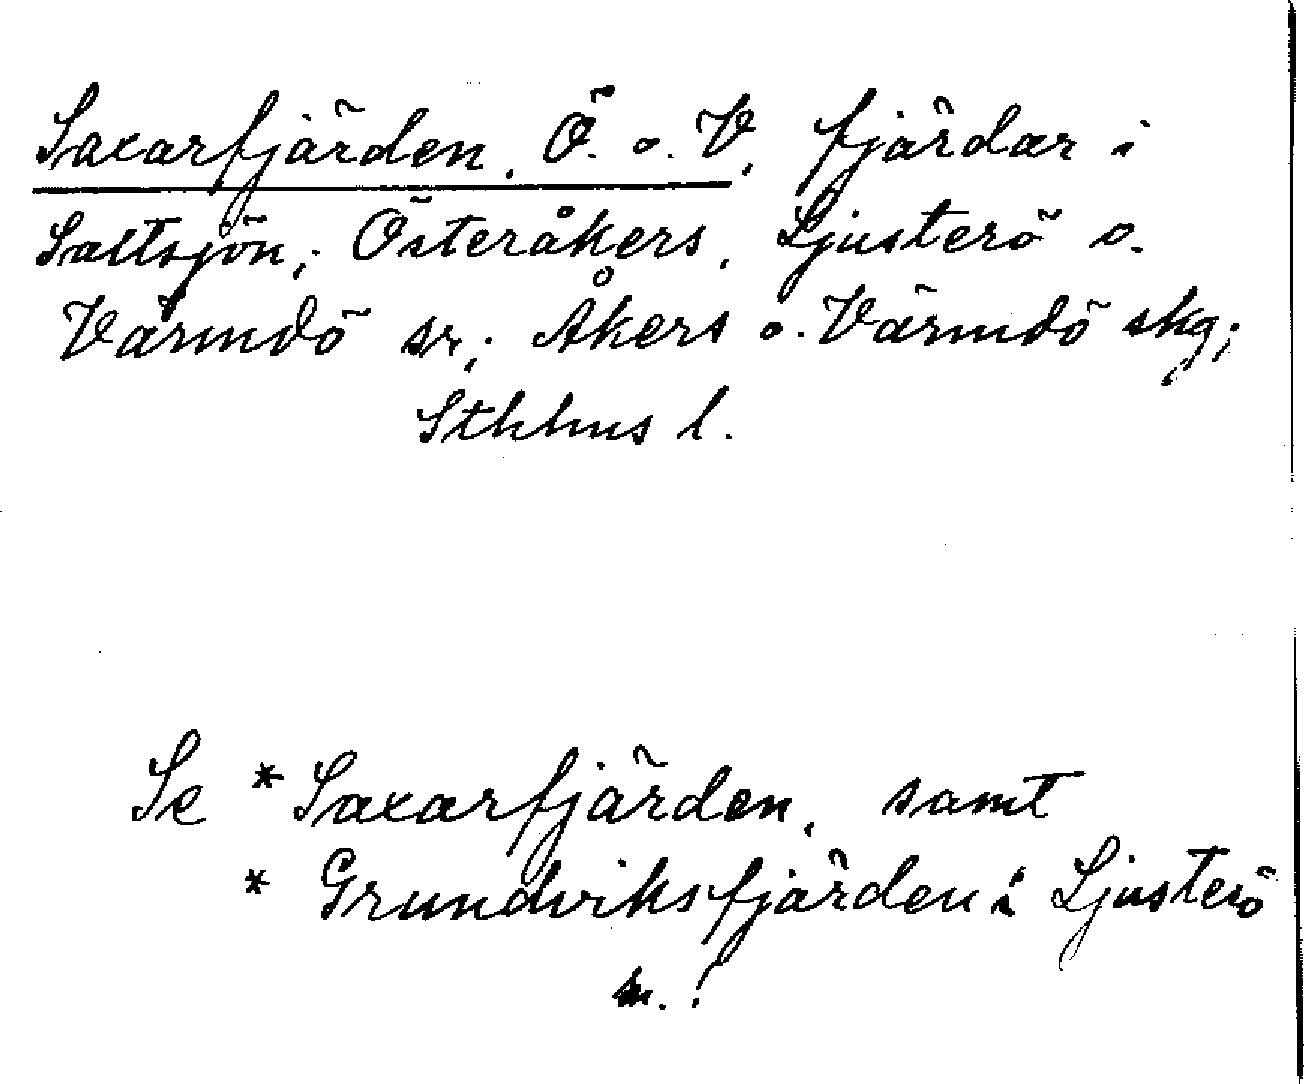 Saxarfjärden, Ö. o. V, fjärdar i
Saltsjön; Österåkers, Ljusterö o.
Värmdö sr; Åkers o. Värmdö skg;
Sthlms l.
Se * Saxarfjärden, samt
* Grundviksfjärden i Ljusterö
sn.!